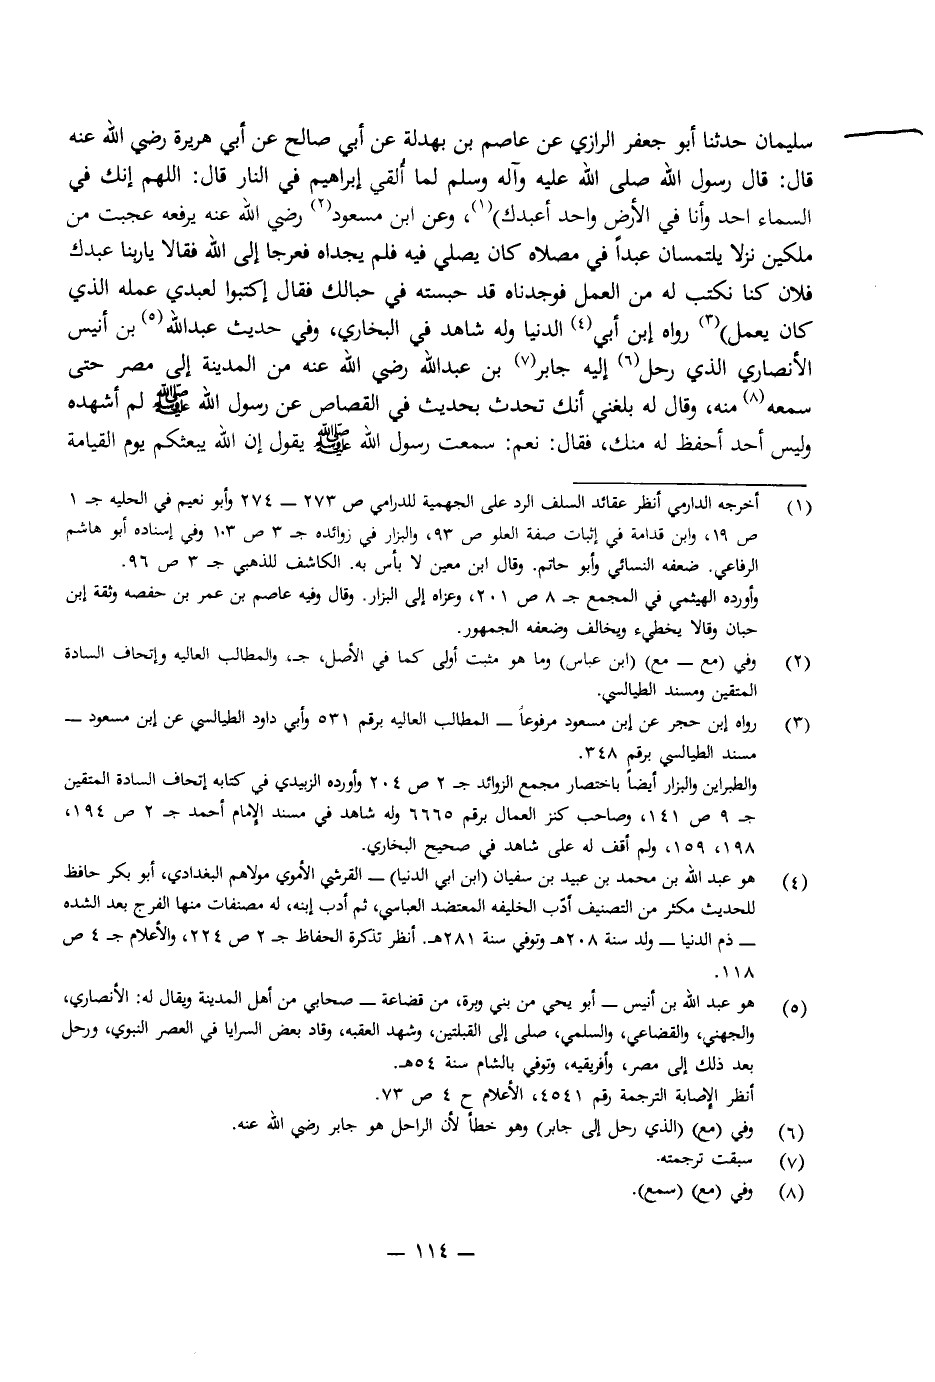 سليمان حدثنا أبو جعفر الرازي عن عاصم بن بهدلة عن أبي صالح عن أبي هريرة رضي الله عنه
قال: قال رسول الله صلى الله عليه وآله وسلم لما أُلقي إبراهيم في النار قال: اللهم إنك في
السماء احد وأنا في الأرض واحد أعبدك)(١)، وعن ابن مسعود(٢) رضي الله عنه يرفعه عجبت من
ملكين نزلا يلتمسان عبداً في مصلاه كان يصلي فيه فلم يجداه فعرجا إلى الله فقالا ياربنا عبدك
فلان كنا نكتب له من العمل فوجدناه قد حبسته في حبالك فقال إكتبوا لعبدي عمله الذي
كان يعمل)(٣) رواه إبن أبي(٤) الدنيا وله شاهد في البخاري، وفي حديث عبدالله(٥) بن أنيس
الأنصاري الذي رحل(٦) إليه جابر(٧) بن عبدالله رضي الله عنه من المدينة إلى مصر حتى
سمعه(٨) منه، وقال له بلغني أنك تحدث بحديث في القصاص عن رسول الله ﷺ لم أشهده
وليس أحد أحفظ له منك، فقال: نعم: سمعت رسول الله ﷺ يقول إن الله يبعثكم يوم القيامة
(١) أخرجه الدارمي أنظر عقائد السلف الرد على الجهمية للدرامي ص ٢٧٣ — ٢٧٤ وأبو نعيم في الحليه جـ ١
ص ١٩، وابن قدامة في إثبات صفة العلو ص ٩٣، والبزار في زوائده جـ ٣ ص ١٠٣ وفي إسناده أبو هاشم
الرفاعي. ضعفه النسائي وأبو حاتم. وقال ابن معين لا بأس به. الكاشف للذهبي جـ ٣ ص ٩٦.
وأورده الهيثمي في المجمع جـ ٨ ص ٢٠١، وعزاه إلى البزار. وقال وفيه عاصم بن عمر بن حفصه وثقة إبن
حبان وقالا يخطيء ويخالف وضعفه الجمهور.
(٢) وفي (مع — مع) (ابن عباس) وما هو مثبت أولى كما في الأصل، جـ، والمطالب العاليه وإتحاف السادة
المتقين ومسند الطيالسي.
(٣) رواه إبن حجر عن إبن مسعود مرفوعاً — المطالب العاليه برقم ٥٣١ وأبي داود الطيالسي عن إبن مسعود —
مسند الطيالسي برقم ٣٤٨.
والطبراين والبزار أيضاً باختصار مجمع الزوائد جـ ٢ ص ٢٠٤ وأورده الزبيدي في كتابه إتحاف السادة المتقين
جـ ٩ ص ١٤١، وصاحب كنز العمال برقم ٦٦٦٥ وله شاهد في مسند الإمام أحمد جـ ٢ ص ١٩٤،
١٩٨، ١٥٩، ولم أقف له على شاهد في صحيح البخاري.
(٤) هو عبد الله بن محمد بن عبيد بن سفيان (ابن ابي الدنيا) — القرشي الأموي مولاهم البغدادي، أبو بكر حافظ
للحديث مكثر من التصنيف أدّب الخليفه المعتضد العباسي، ثم أدب إبنه، له مصنفات منها الفرج بعد الشده
— ذم الدنيا — ولد سنة ٢٠٨هـ وتوفي سنة ٢٨١هـ. أنظر تذكرة الحفاظ جـ ٢ ص ٢٢٤، والأعلام جـ ٤ ص
١١٨.
(٥) هو عبد الله بن أنيس — أبو يحي من بني وبرة، من قضاعة — صحابي من أهل المدينة ويقال له: الأنصاري،
والجهني، والقضاعي، والسلمي، صلى إلى القبلتين، وشهد العقبه، وقاد بعض السرايا في العصر النبوي، ورحل
بعد ذلك إلى مصر، وأفريقيه، وتوفي بالشام سنة ٥٤هـ.
أنظر الإصابة الترجمة رقم ٤٥٤١، الأعلام ح ٤ ص ٧٣.
(٦) وفي (مع) (الذي رحل إلى جابر) وهو خطأ لأن الراحل هو جابر رضي الله عنه.
(٧) سبقت ترجمته.
(٨) وفي (مع) (سمع).
— ١١٤ —